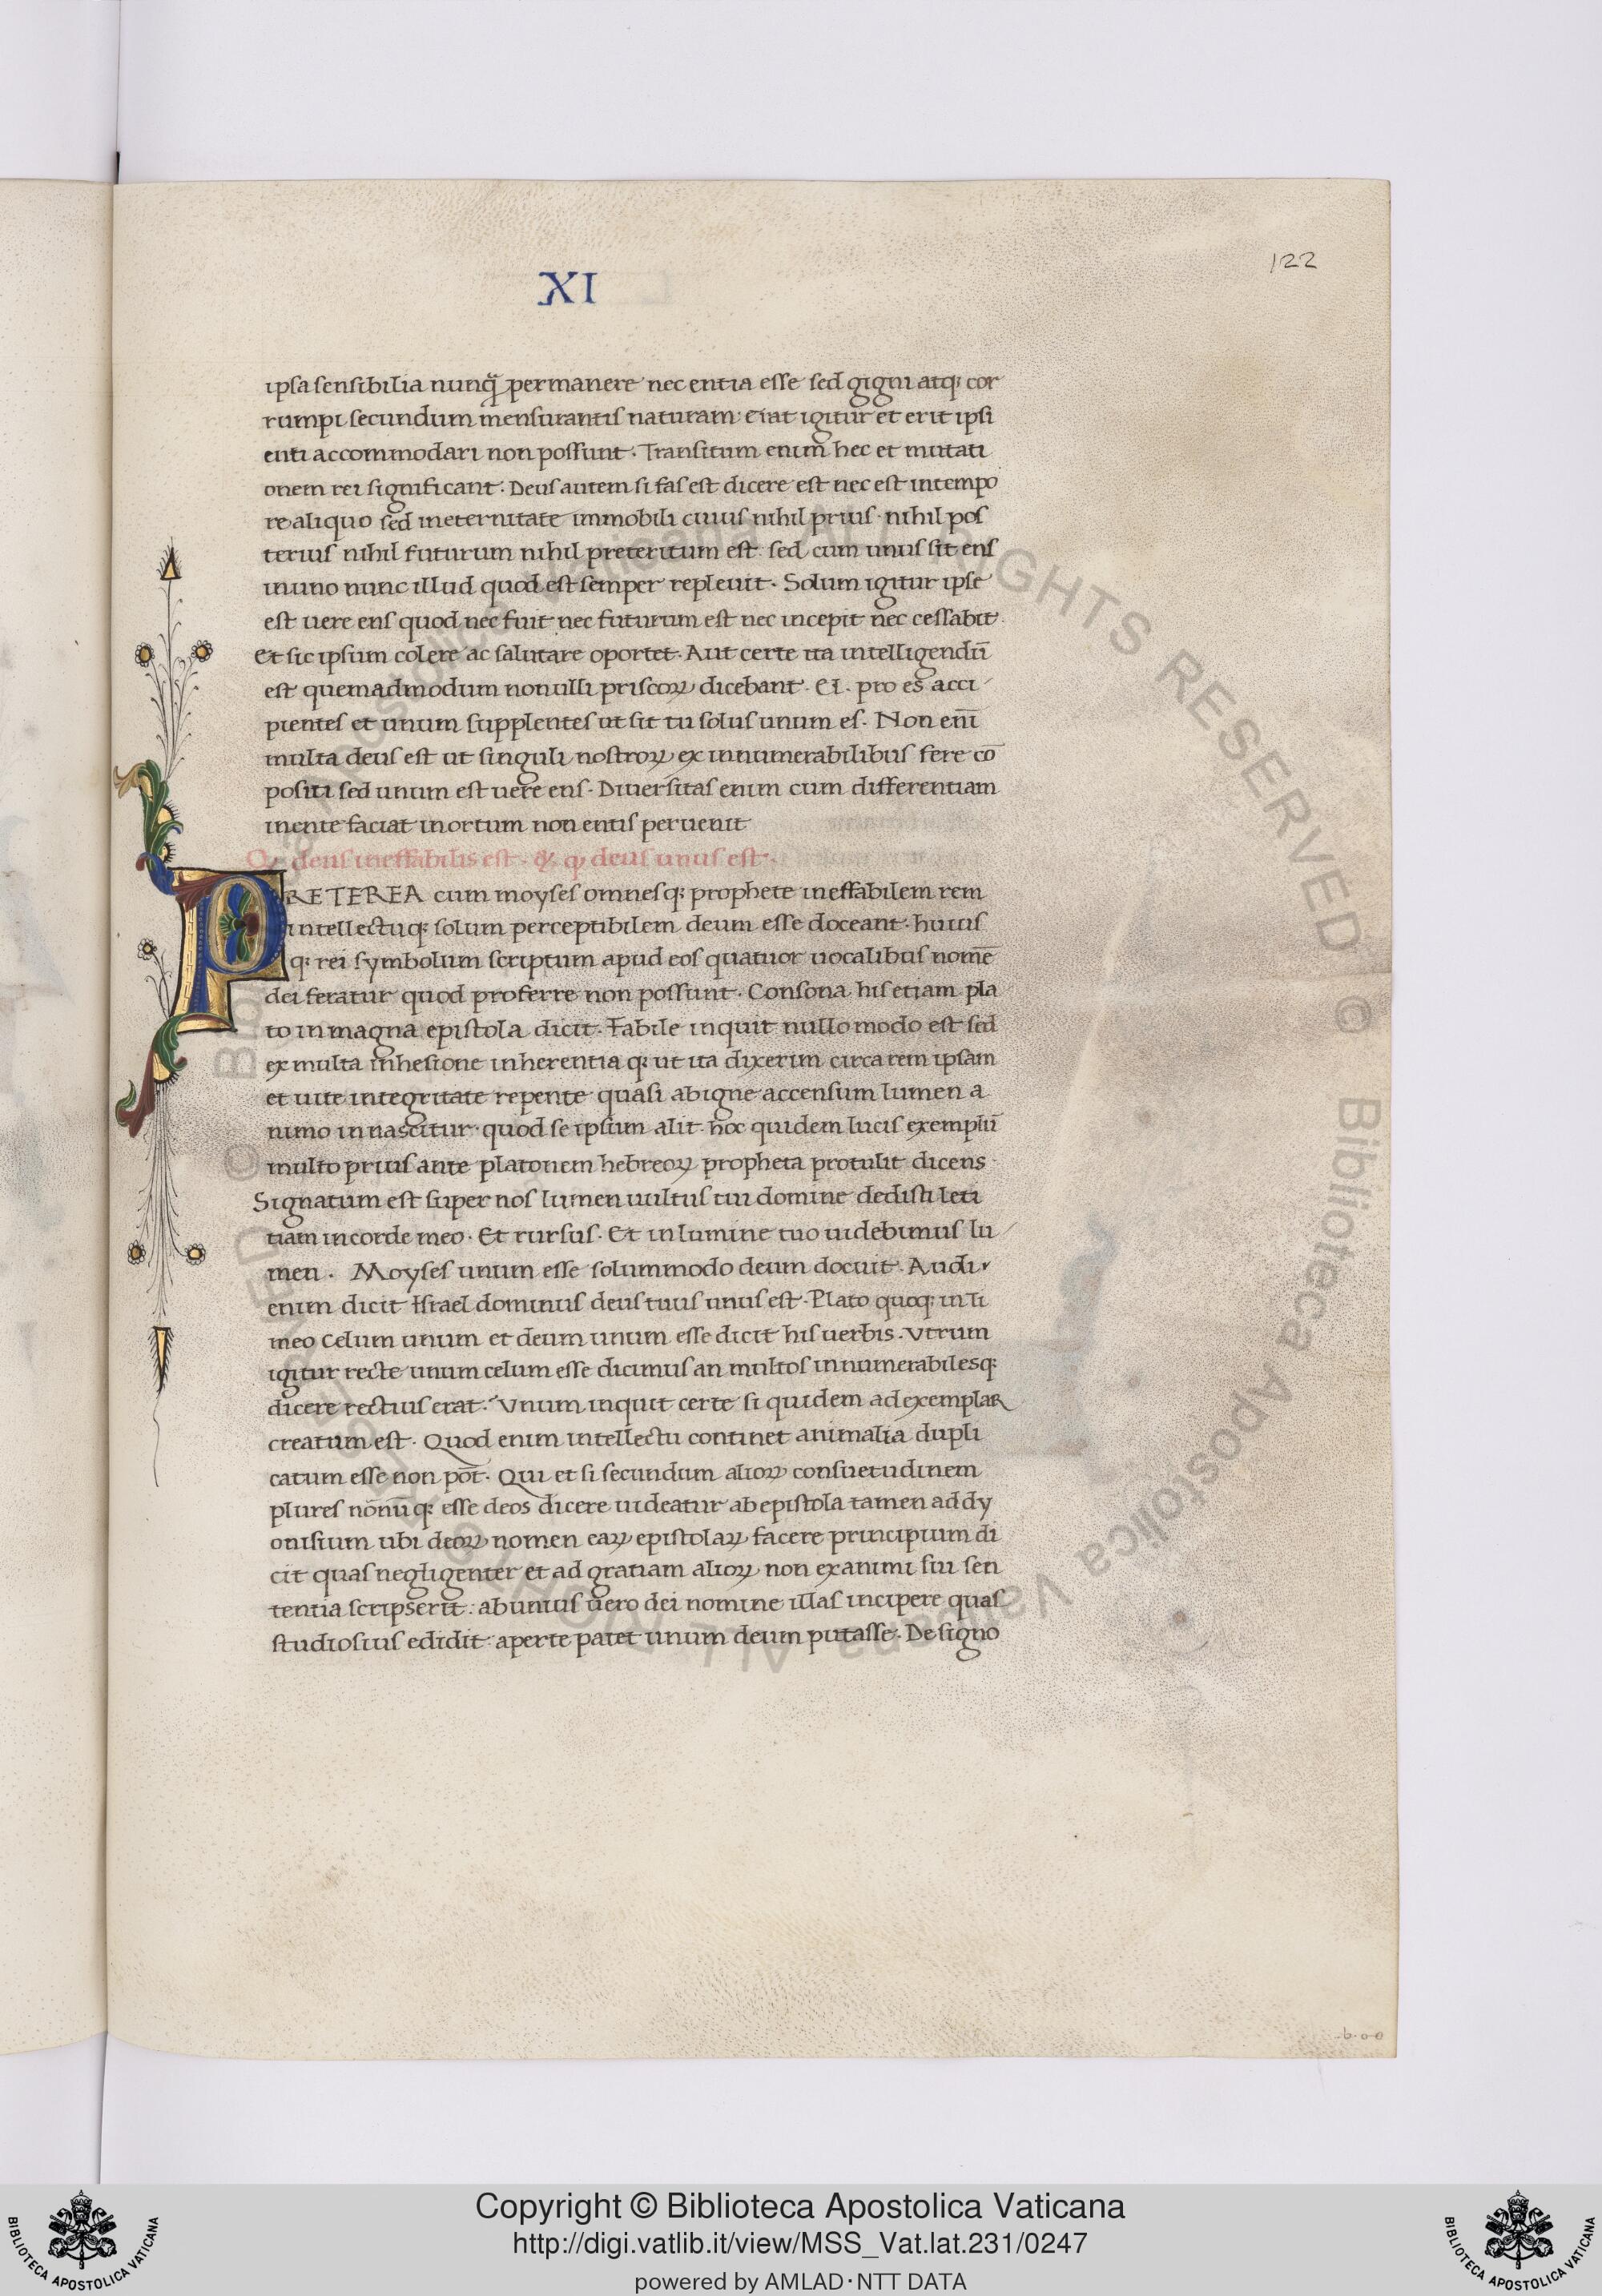 122
XI
ipsa sensibilia nunq̄ permanere nec entia esse sed gigni atq; cor
rumpi secundum mensurantis naturam: erat igitur et erit ipsi
enti accommodari non possunt. Transitum enim hec et mutati
onem rei significant. Deus autem si fas est dicere est nec est in tempo
re aliquo sed in eternitate immobili cuius nihil prius. nihil pos
terius nihil futurum nihil preteritum est. sed cum unus sit ens
in uno nunc illud quod est semper repleuit. Solum igitur ipse
est uere ens quod nec fuit nec futurum est nec incepit nec cessabit.
Et sic ipsum colere ac salutare oportet. Aut certe ita intelligendū
est quemadmodum nonulli priscoꝝ dicebant. EI. pro es acci
pientes et unum supplentes ut sit tu solus unum es. Non enī
multa deus est ut singuli nostroꝝ ex innumerabilibus fere cō
positi sed unum est uere ens. Diuersitas enim cum differentiam
in ente faciat in ortum non entis peruenit
Q deus ineffabilis est. & ꝙ deus unus est.
PRETEREA cum moyses omnesq; prophete ineffabilem rem
intellectuq; solum perceptibilem deum esse doceant. huius
q; rei symbolum scriptum apud eos quatuor uocalibus nomē
dei feratur quod proferre non possunt. Consona his etiam pla
to in magna epistola dicit. Fabile inquit nullo modo est sed
ex multa inhesione inherentia q; ut ita dixerim circa rem ipsam
et uite integritate repente quasi ab igne accensum lumen a
nimo innascitur. quod se ipsum alit. hoc quidem lucis exemplū
multo prius ante platonem hebreoꝝ propheta protulit dicens.
Signatum est super nos lumen uultus tui domine dedisti leti
tiam in corde meo. Et rursus. Et in lumine tuo uidebimus lu
men. Moyses unum esse solummodo deum docuit. Audi
enim dicit Israel dominus deus tuus unus est. Plato quoq; in ti
meo celum unum et deum unum esse dicit his uerbis. Vtrum
igitur recte unum celum esse dicimus an multos innumerabilesq;
dicere rectius erat. Vnum inquit certe si quidem ad exemplar
creatum est. Quod enim intellectu continet animalia dupli
catum esse non pōt. Qui et si secundum alioꝝ consuetudinem
plures nōnūq; esse deos dicere uideatur ab epistola tamen ad dy
onisium ubi deoꝝ nomen eaꝝ epistolaꝝ facere principium di
cit quas negligenter et ad gratiam alioꝝ non ex animi sui sen
tentia scripserit: ab unius uero dei nomine illas incipere quas
studiosius edidit: aperte patet unum deum putasse. De signo
Copyright © Biblioteca Apostolica Vaticana
http://digi.vatlib.it/view/MSS_Vat.lat.231/0247
powered by AMLAD·NTT DATA
BIBLIOTECA APOSTOLICA VATICANA
BIBLIOTECA APOSTOLICA VATICANA